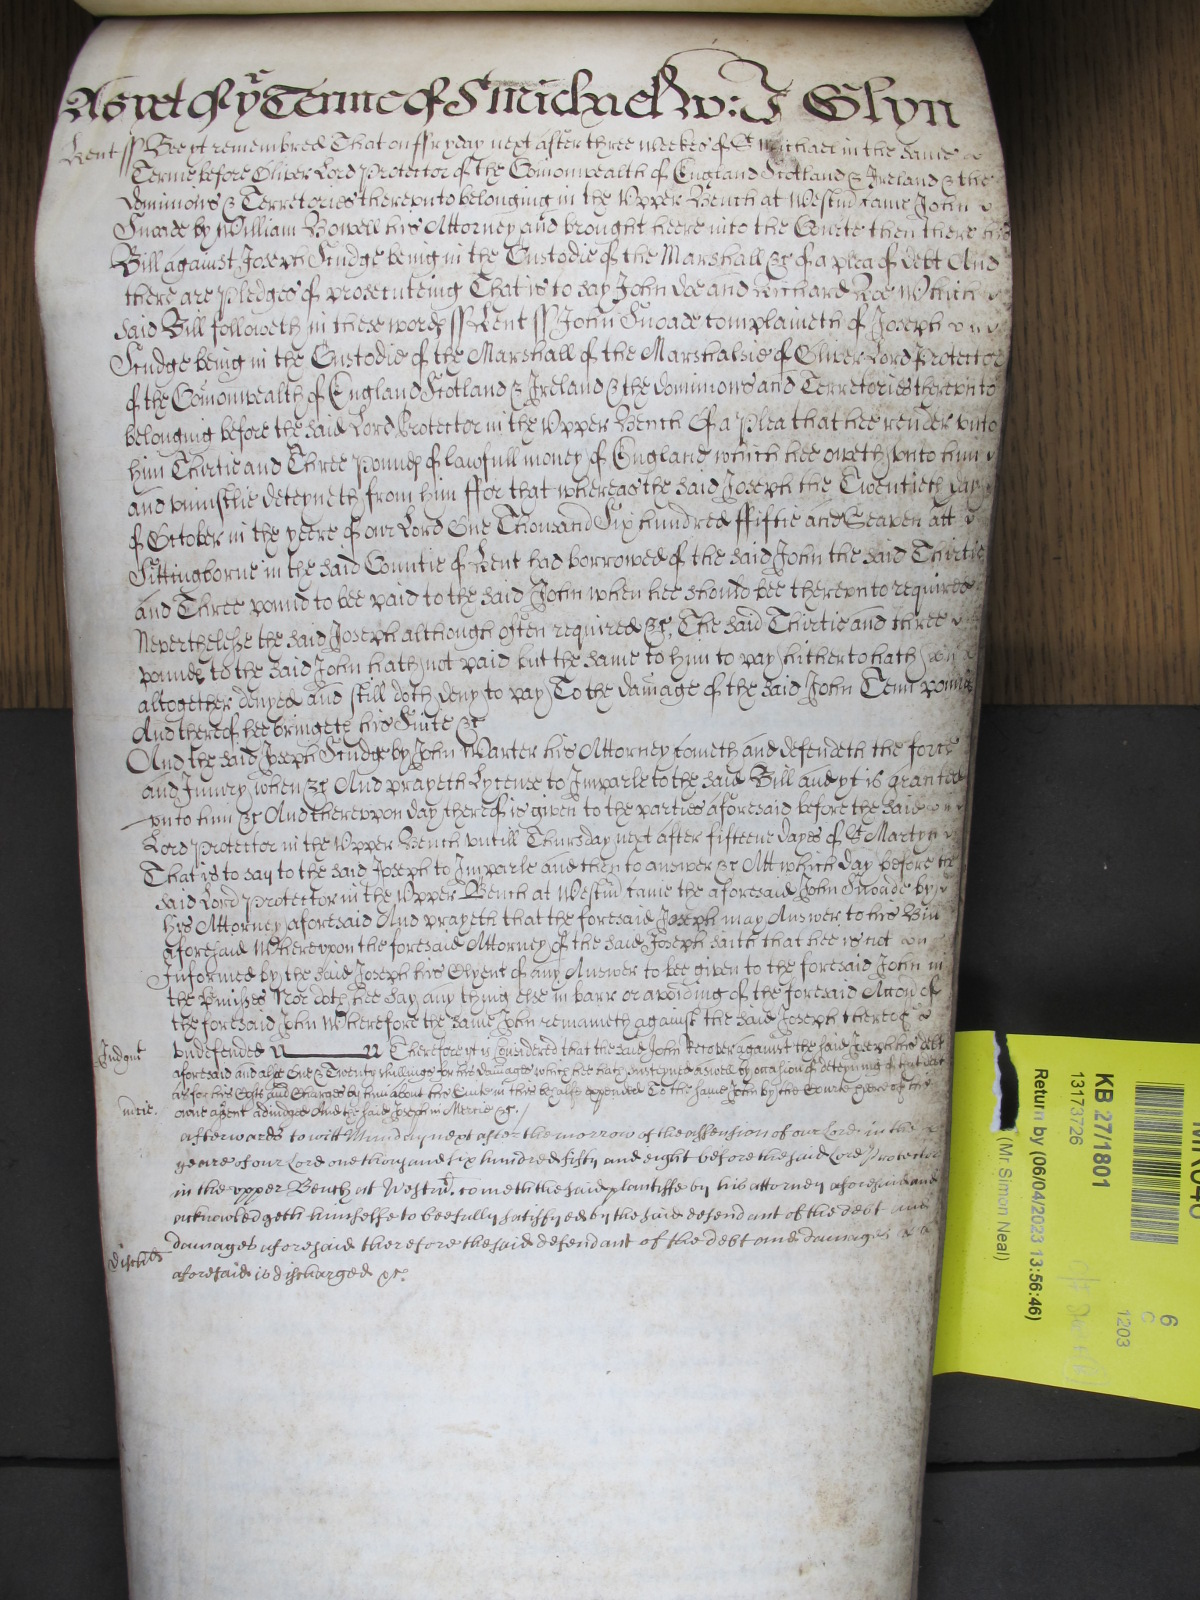 As yet of yͬ Terme of St Michaell w: J Glyn
Kent ss Bee yt remembred That on ffryday next after three weekes of St Michael in the same
Terme before Oliver Lord Protector of the Comonwealth of England Scotland & Ireland & the
Dominions & Territories thereunto belonging in the Upper Bench at Westm̄ came John
Snoade by William Bowell his Attorney and brought heere into the Courte then there his
Bill against Joseph Fudge being in the Custodie of the Marshall &c of a plea of debt And
there are Pledges of prosecuteing That is to say John Doe and Richard Roe Which
said Bill followeth in these words ss Kent ss John Snoade complaineth of Joseph
Fudge being in the Custodie of the Marshall of the Marshalsie of Oliver Lord Protector
of the Comonwealth of England Scotland & Ireland & the dominions and Territories thereunto
belonging before the said Lord Protector in the Upper Bench Of a Plea that hee render unto
him Thirtie and Three Pounds of lawfull money of England which hee oweth unto him
and uniustlie deteyneth from him ffor that whereas the said Joseph the Twentieth day
of October in the yeere of our Lord One Thousand Six hundred ffiftie and Seaven att
Sittingborne in the said Countie of Kent had borrowed of the said John the said Thirtie
and Three pound to bee paid to the said John when hee should bee thereunto required
Neverthelesse the said Joseph although often required &c The said Thirtie and three
pounds to the said John hath not paid but the same to him to pay hitherto hath
altogether denyed and still doth deny to pay To the damage of the said John Tenn pounds
And thereof hee bringeth his Suite &c
And the said Joseph Fudge by John Warter his Attorney cometh and defendeth the force
and Iniury when &c And prayeth Lycense to Imparle to the said Bill and yt is granted
unto him &c And thereupon day thereof is given to the parties aforesaid before the said
Lord Protector in the Upper Bench untill Thursday next after fifteene dayes of St Martyn
That is to say to the said Joseph to Imparle and then to answer &c Att which day before the
said Lord Protector in the Upper Bench at Westm̄ came the aforesaid John Snoade by
his Attorney aforesaid And prayeth that the foresaid Joseph may Answer to his Bill
aforesaid Whereupon the foresaid Attorney of the said Joseph saith that hee is not
Informed by the said Joseph his Clyent of any Answer to bee given to the foresaid John in
the Pmises Nor doth hee say any thing else in barr or avoiding of the foresaid Accon of
the foresaid John Wherefore the same John remaineth against the said Joseph thereof
Undefended Therefore yt is Considered that the said John Recover against the said Joseph his debt
Iudgmt
aforesaid and also One & Twenty shillings for his damages which hee hath susteyned aswell by occasion of deteyning of that debt
as for his Costs and Charges by him about his Suite in this behalfe expended To the same John by the Courte heere of his
owne assent adiudged And the said Joseph in Mercie &c
mcie.
afterwards to witt Munday next after the morrow of the assension of our Lord in the
yeare of our Lord one thousand six hundred fifty and eight before the said Lord Protector
in the upper Bench at Westm̄. cometh the said plantiffe by his attorney aforesaid and
acknowledgeth himselfe to bee fully satisfyed by the said defendant of the debt and
damages aforesaid therefore the said defendant of the debt and damages
aforesaid is discharged &c.
KB 27/1801
13173726
Return by (06/04/2023 13:56:46)
(Mr Simon Neal)
6
C
1203